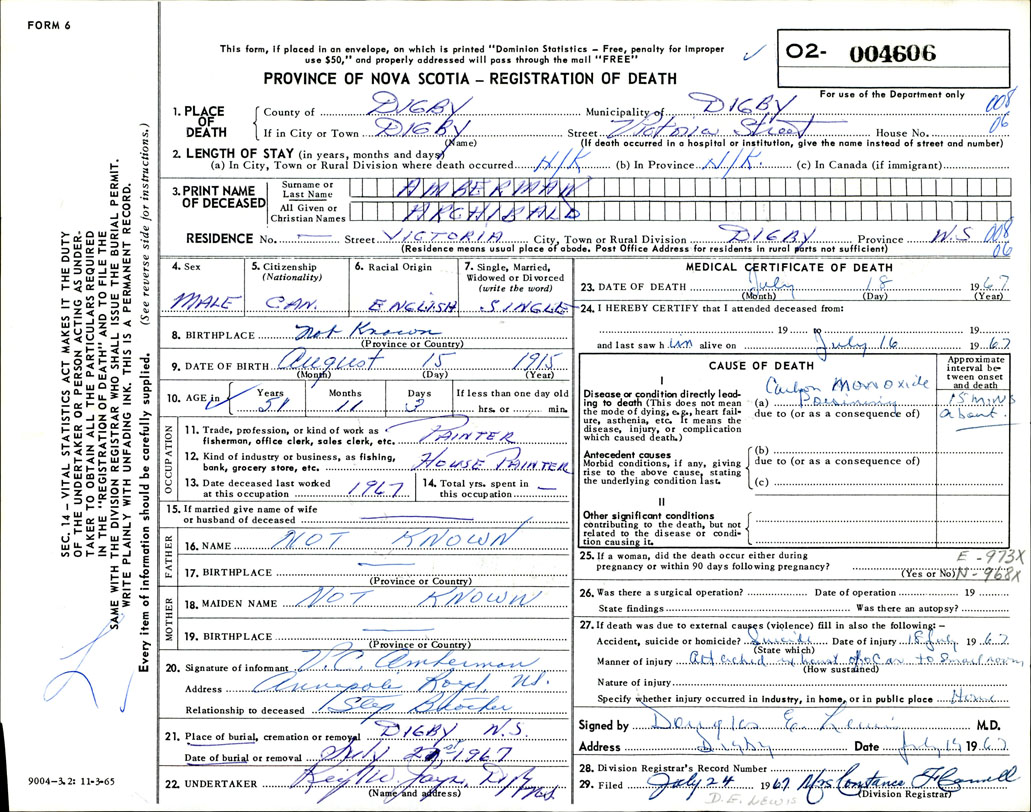 FORM 6
This form, if placed in an envelope, on which is printed "Dominion Statistics – Free, penalty for improper
use $50," and properly addressed will pass through the mail "FREE"
02- 004606
PROVINCE OF NOVA SCOTIA – REGISTRATION OF DEATH
For use of the Department only
1. PLACE OF DEATH
County of DIGBY Municipality of DIGBY 008
If in City or Town DIGBY Street Victoria Street House No. 06
(Name) (If death occurred in a hospital or institution, give the name instead of street and number)
2. LENGTH OF STAY (in years, months and days)
(a) In City, Town or Rural Division where death occurred N/K (b) In Province N/K. (c) In Canada (if immigrant)
3. PRINT NAME OF DECEASED
Surname or Last Name AMBERMAN
All Given or Christian Names ARCHIBALD
RESIDENCE No. — Street VICTORIA City, Town or Rural Division DIGBY Province N.S 008
(Residence means usual place of abode. Post Office Address for residents in rural parts not sufficient) 06
4. Sex
MALE
5. Citizenship
(Nationality)
CAN.
6. Racial Origin
ENGLISH
7. Single, Married,
Widowed or Divorced
(write the word)
SINGLE
8. BIRTHPLACE Not Known
(Province or Country)
9. DATE OF BIRTH August 15 1915
(Month) (Day) (Year)
10. AGE in Years Months Days If less than one day old
51 11 3 hrs. or min.
OCCUPATION
11. Trade, profession, or kind of work as
fisherman, office clerk, sales clerk, etc. PAINTER
12. Kind of industry or business, as fishing,
bank, grocery store, etc. HOUSE PAINTER
13. Date deceased last worked
at this occupation 1967
14. Total yrs. spent in
this occupation —
15. If married give name of wife
or husband of deceased
FATHER
16. NAME NOT KNOWN
17. BIRTHPLACE —
(Province or Country)
MOTHER
18. MAIDEN NAME NOT KNOWN
19. BIRTHPLACE —
(Province or Country)
20. Signature of informant V.C. Amberman
Address Annapolis Royal, NS.
Relationship to deceased Step Brother
21. Place of burial, cremation or removal DIGBY N.S
Date of burial or removal July 21st 1967
22. UNDERTAKER Reg W. Jayne, Digby N.S.
(Name and address)
MEDICAL CERTIFICATE OF DEATH
23. DATE OF DEATH July 18 1967
(Month) (Day) (Year)
24. I HEREBY CERTIFY that I attended deceased from:
19 to 19
and last saw him alive on July 16 1967
CAUSE OF DEATH
Approximate
interval be-
tween onset
and death
I
Disease or condition directly lead-
ing to death (This does not mean
the mode of dying, e.g., heart fail-
ure, asthenia, etc. It means the
disease, injury, or complication
which caused death.)
Carbon Monoxide
(a) Poisoning
15 mins
about.
due to (or as a consequence of)
Antecedent causes
Morbid conditions, if any, giving
rise to the above cause, stating
the underlying condition last.
(b)
due to (or as a consequence of)
(c)
II
Other significant conditions
contributing to the death, but not
related to the disease or condi-
tion causing it.
25. If a woman, did the death occur either during
pregnancy or within 90 days following pregnancy?
(Yes or No)
E-973X
N-968X
26. Was there a surgical operation? Date of operation 19
State findings Was there an autopsy?
27. If death was due to external causes (violence) fill in also the following: –
Accident, suicide or homicide? Suicide Date of injury 18 July 1967
(State which)
Manner of injury Attached exhaust of Car to small room
(How sustained)
Nature of injury
Specify whether injury occurred in Industry, in home, or in public place Home
Signed by Douglas E. Lewis M.D.
Address Digby Date July 19 1967
28. Division Registrar's Record Number
29. Filed July 24 1967 Mrs Constance F Connell
(Division Registrar)
D.E. LEWIS
SEC. 14 – VITAL STATISTICS ACT MAKES IT THE DUTY
OF THE UNDERTAKER OR PERSON ACTING AS UNDER-
TAKER TO OBTAIN ALL THE PARTICULARS REQUIRED
IN THE "REGISTRATION OF DEATH" AND TO FILE THE
SAME WITH THE DIVISION REGISTRAR WHO SHALL ISSUE THE BURIAL PERMIT.
WRITE PLAINLY WITH UNFADING INK. THIS IS A PERMANENT RECORD.
Every item of information should be carefully supplied. (See reverse side for instructions.)
9004-3.2: 11-3-65